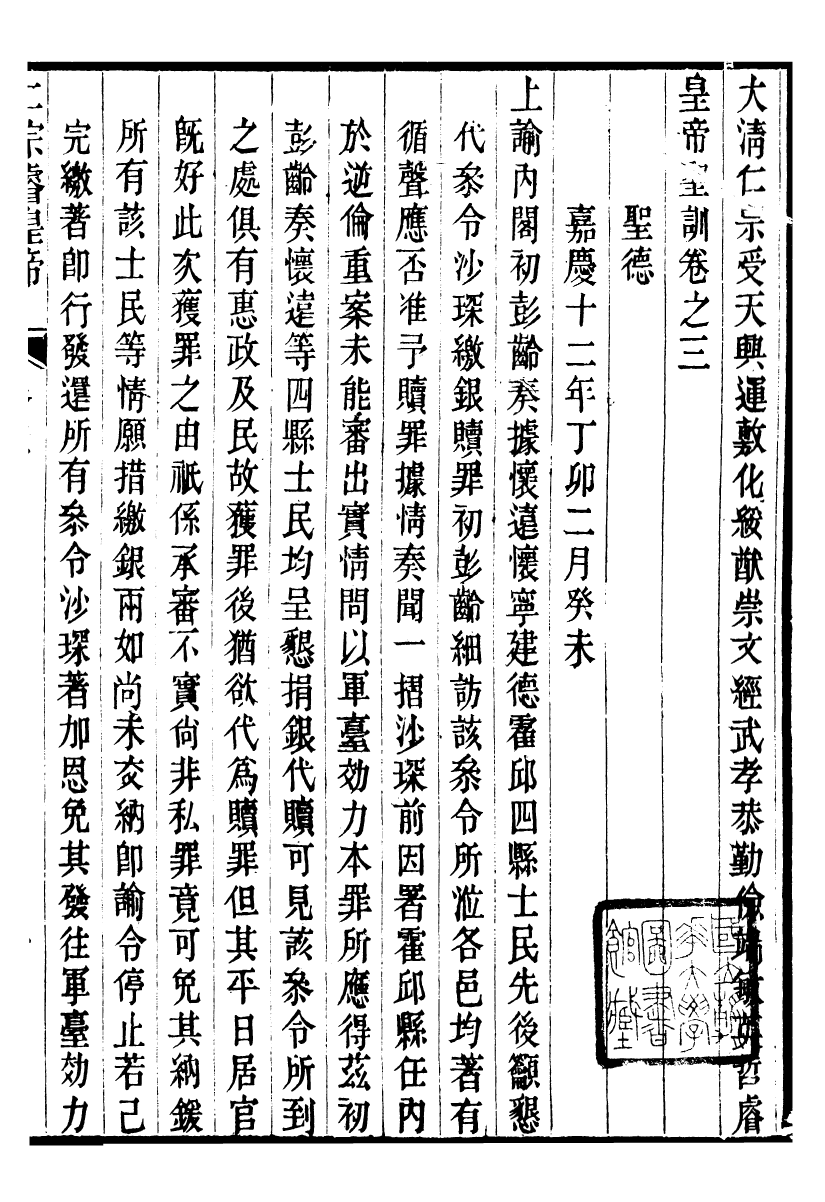 大清仁宗受天興運敷化綏猷崇文經武孝恭勤儉端敏英哲睿
皇帝聖訓卷之三
聖德
嘉慶十二年丁卯二月癸未
上諭內閣初彭齡奏據懷遠懷寧建德霍邱四縣士民先後籲懇
代叅令沙琛繳銀贖罪初彭齡細訪該叅令所涖各邑均著有
循聲應否准予贖罪據情奏聞一摺沙琛前因署霍邱縣任內
於逆倫重案未能審出實情問以軍臺効力本罪所應得茲初
彭齡奏懷遠等四縣士民均呈懇捐銀代贖可見該叅令所到
之處俱有惠政及民故獲罪後猶欲代為贖罪但其平日居官
旣好此次獲罪之由祇係承審不實尙非私罪竟可免其納鍰
所有該士民等情願措繳銀兩如尚未交納卽諭令停止若已
完繳著卽行發還所有叅令沙琛著加恩免其發往軍臺効力
仁宗睿皇帝
國立清華大學圖書館藏